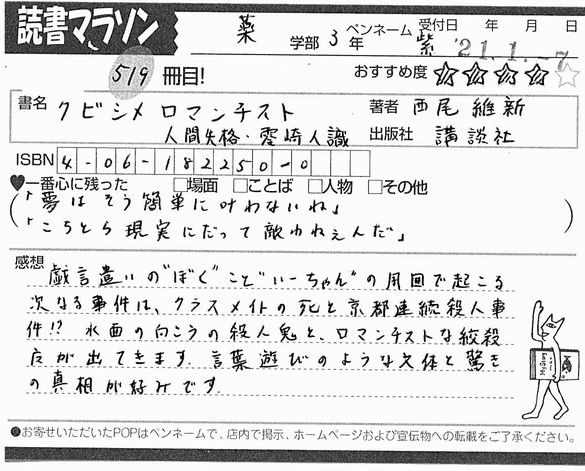 読書マラソン
薬 学部 3 年 ペンネーム 紫 受付日 年 月 日
'21.1.-7
519 冊目! おすすめ度 ☆☆☆☆☆
書名 クビシメロマンチスト 著者 西尾維新
人間失格・零崎人識 出版社 講談社
ISBN 4-06-182250-0
♥一番心に残った □場面 □ことば □人物 □その他
「夢はそう簡単に叶わないね」
「こちとら現実にだって敵わねえんだ」
感想 戯言遣いの"ぼく"こと"いーちゃん"の周囲で起こる
次なる事件は、クラスメイトの死と京都連続殺人事
件!? 水面の向こうの殺人鬼と、ロマンチストな絞殺
魔が出てきます。言葉遊びのような文体と驚き
の真相が好みです。
●お寄せいただいたPOPはペンネームで、店内で掲示、ホームページおよび宣伝物への転載をご了承ください。